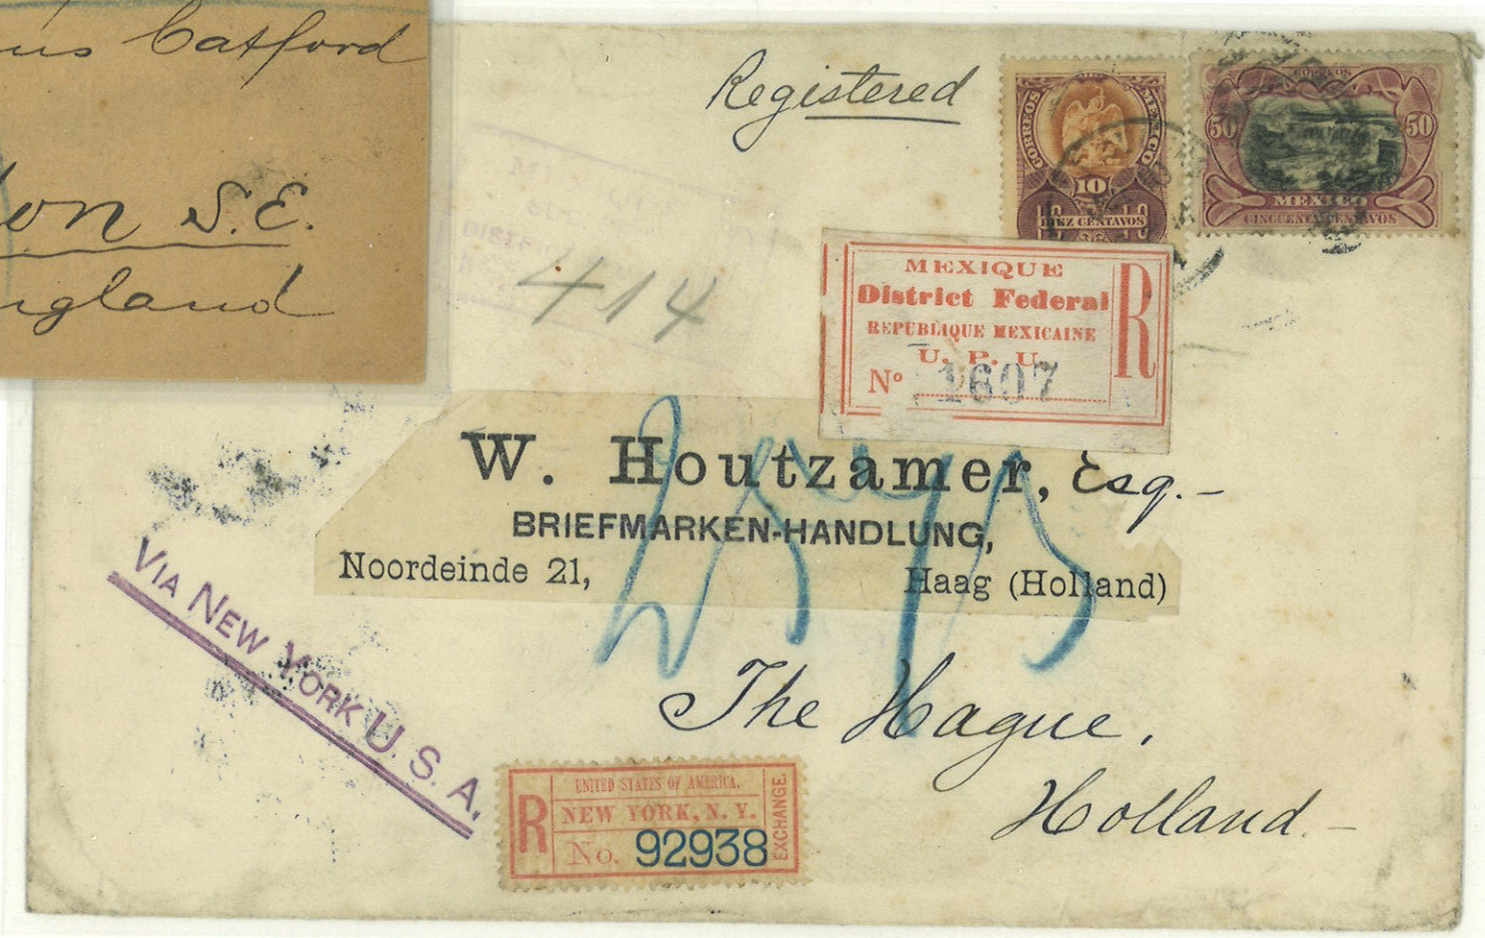 us Catford
on S.E.
ngland
Registered
CORREOS MEXICO
10
DIEZ CENTAVOS
CORREOS
50 50
MEXICO
CINCUENTA CENTAVOS
414
MEXIQUE
District Federal
REPUBLIQUE MEXICAINE
U. P. U.
No 1607
R
W. Houtzamer, Esq.-
BRIEFMARKEN-HANDLUNG,
Noordeinde 21, Haag (Holland)
VIA NEW YORK U.S.A.
The Hague,
Holland.-
R
UNITED STATES OF AMERICA.
NEW YORK, N. Y.
No. 92938
EXCHANGE.